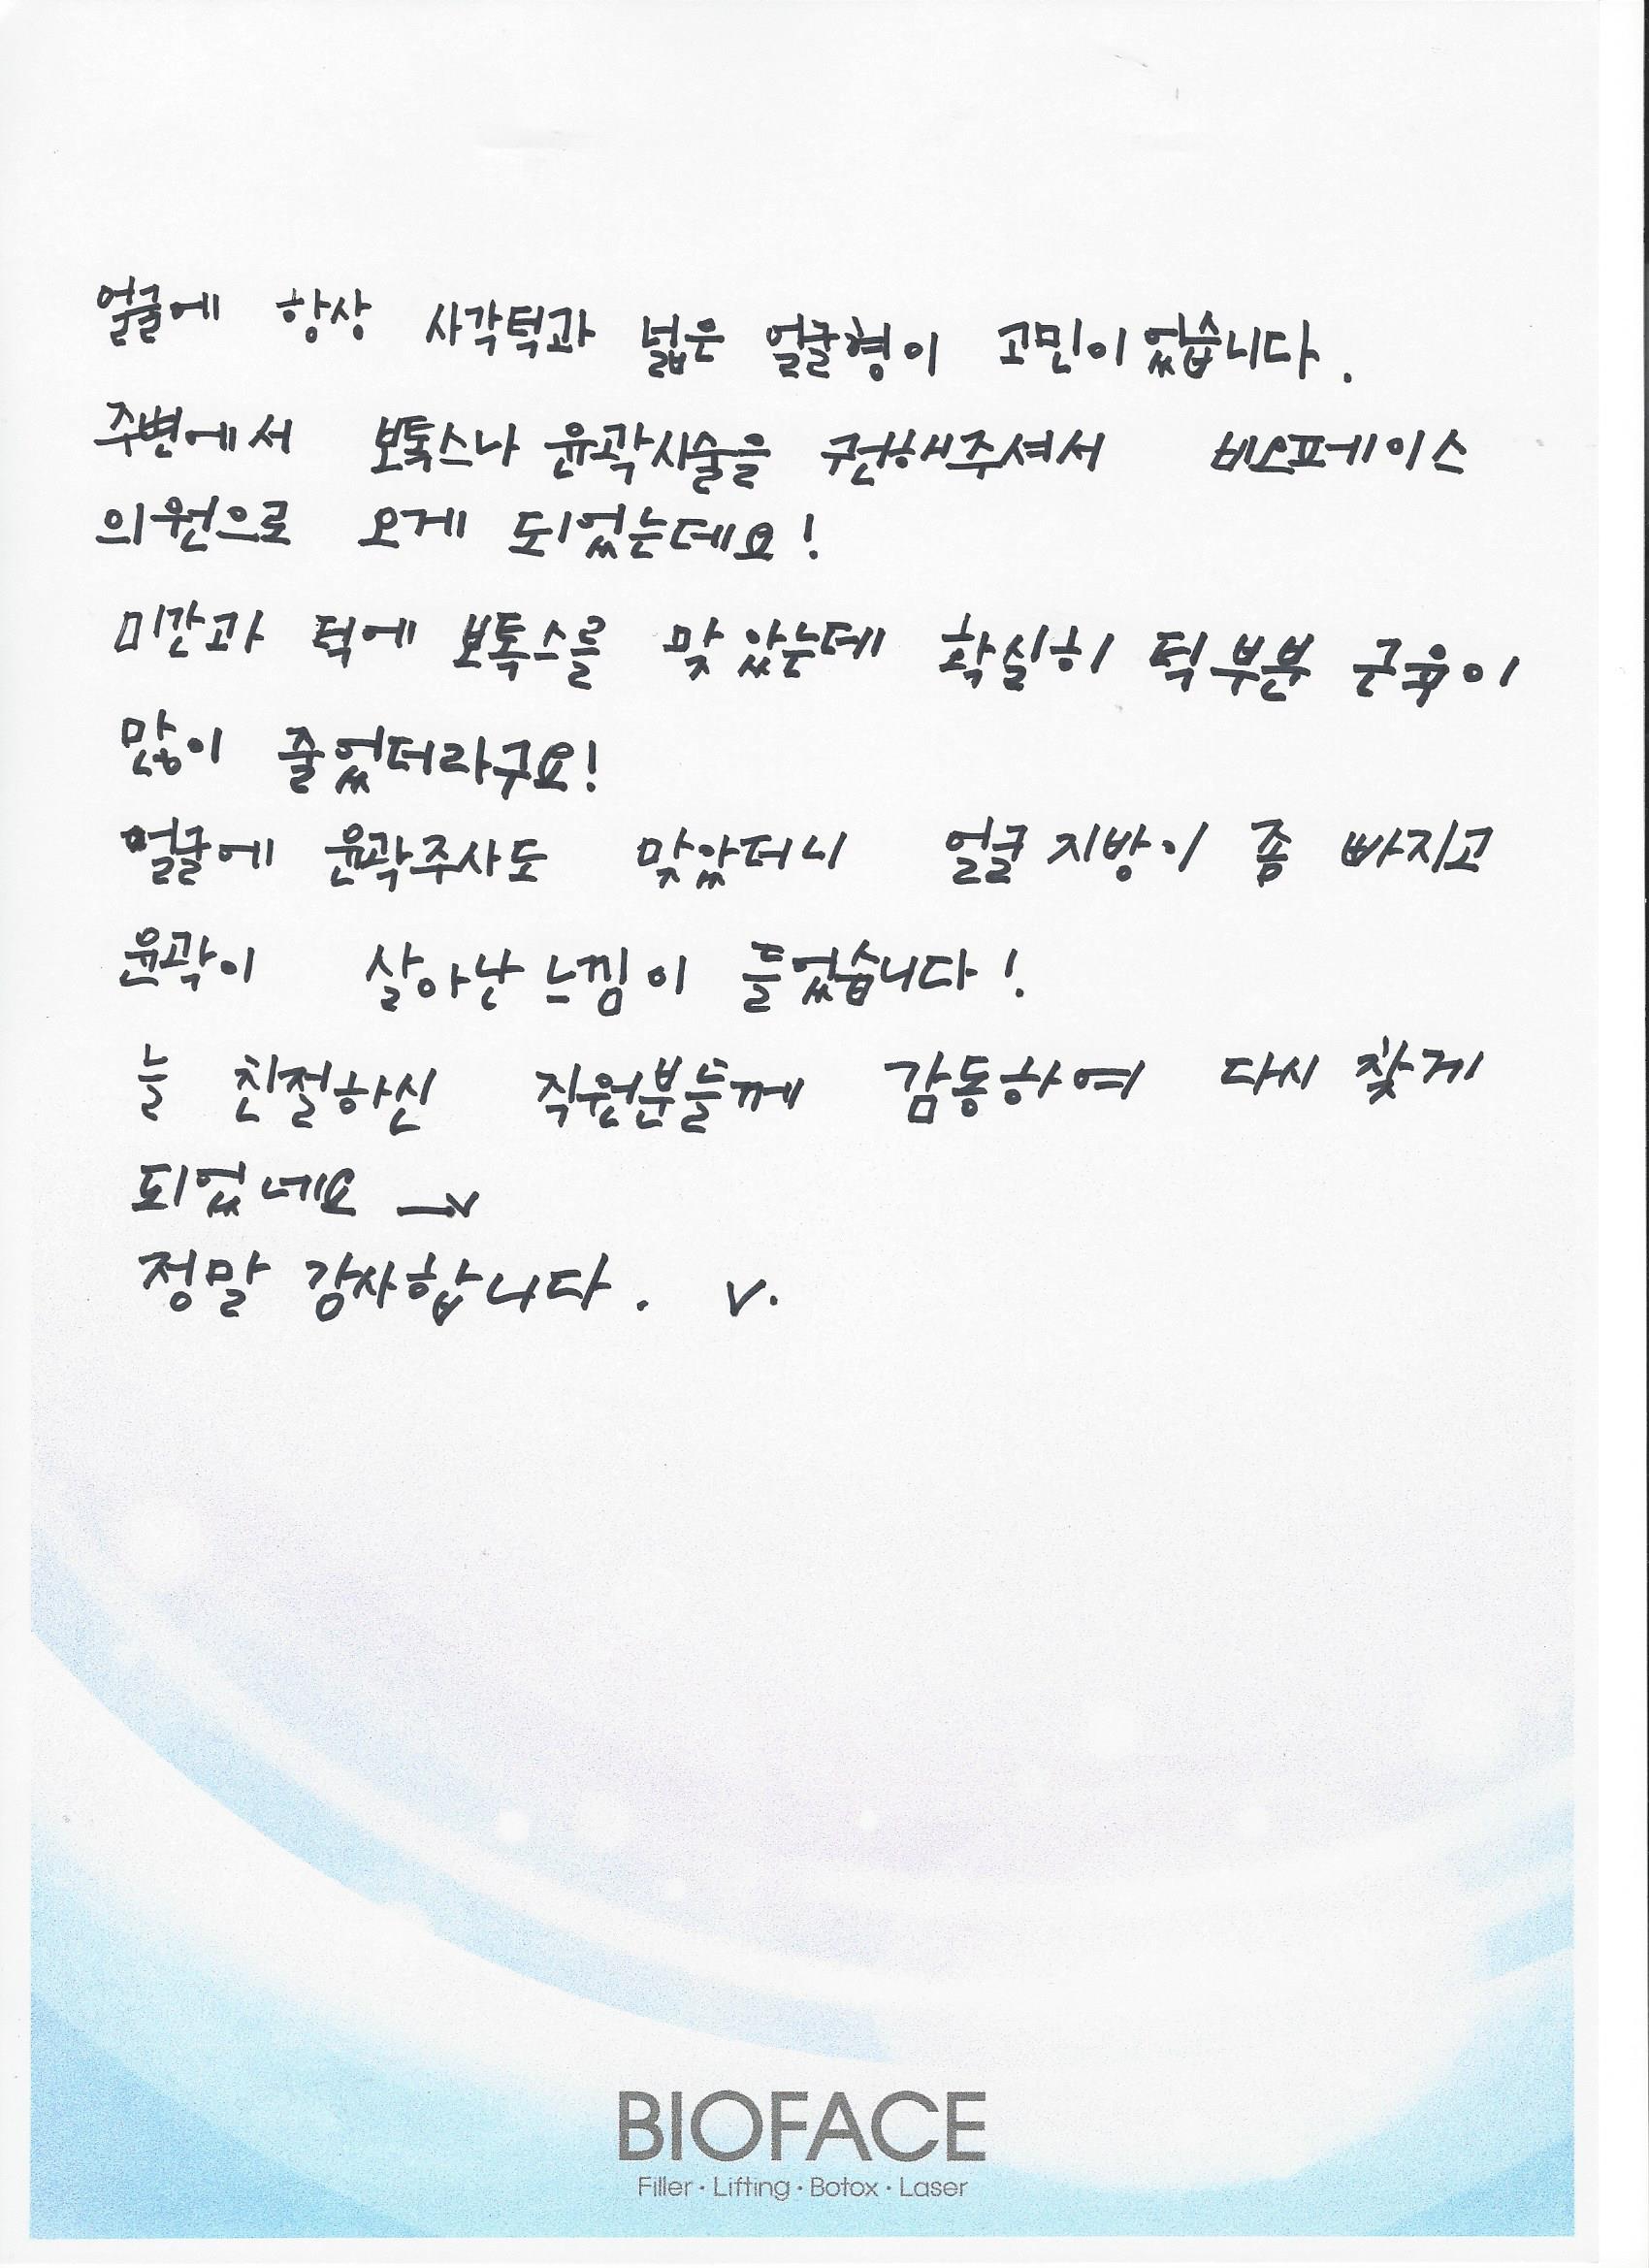 얼굴에 항상 사각턱과 넓은 얼굴형이 고민이었습니다.
주변에서 보톡스나 윤곽시술을 권해주셔서 비오페이스
의원으로 오게 되었는데요!
미간과 턱에 보톡스를 맞았는데 확실히 턱부분 근육이
많이 줄었더라구요!
얼굴에 윤곽주사도 맞았더니 얼굴지방이 좀 빠지고
윤곽이 살아난 느낌이 들었습니다!
늘 친절하신 직원분들께 감동하여 다시 찾게
되었네요
정말 감사합니다. v.
BIOFACE
Filler · Lifting · Botox · Laser